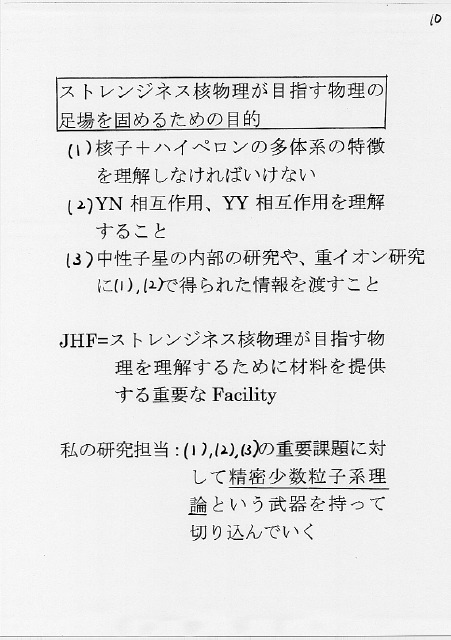 10
ストレンジネス核物理が目指す物理の
足場を固めるための目的
(1)核子＋ハイペロンの多体系の特徴
を理解しなければいけない
(2)YN 相互作用、YY 相互作用を理解
すること
(3)中性子星の内部の研究や、重イオン研究
に(1),(2)で得られた情報を渡すこと
JHF=ストレンジネス核物理が目指す物
理を理解するために材料を提供
する重要な Facility
私の研究担当：(1),(2),(3)の重要課題に対
して精密少数粒子系理
論という武器を持って
切り込んでいく